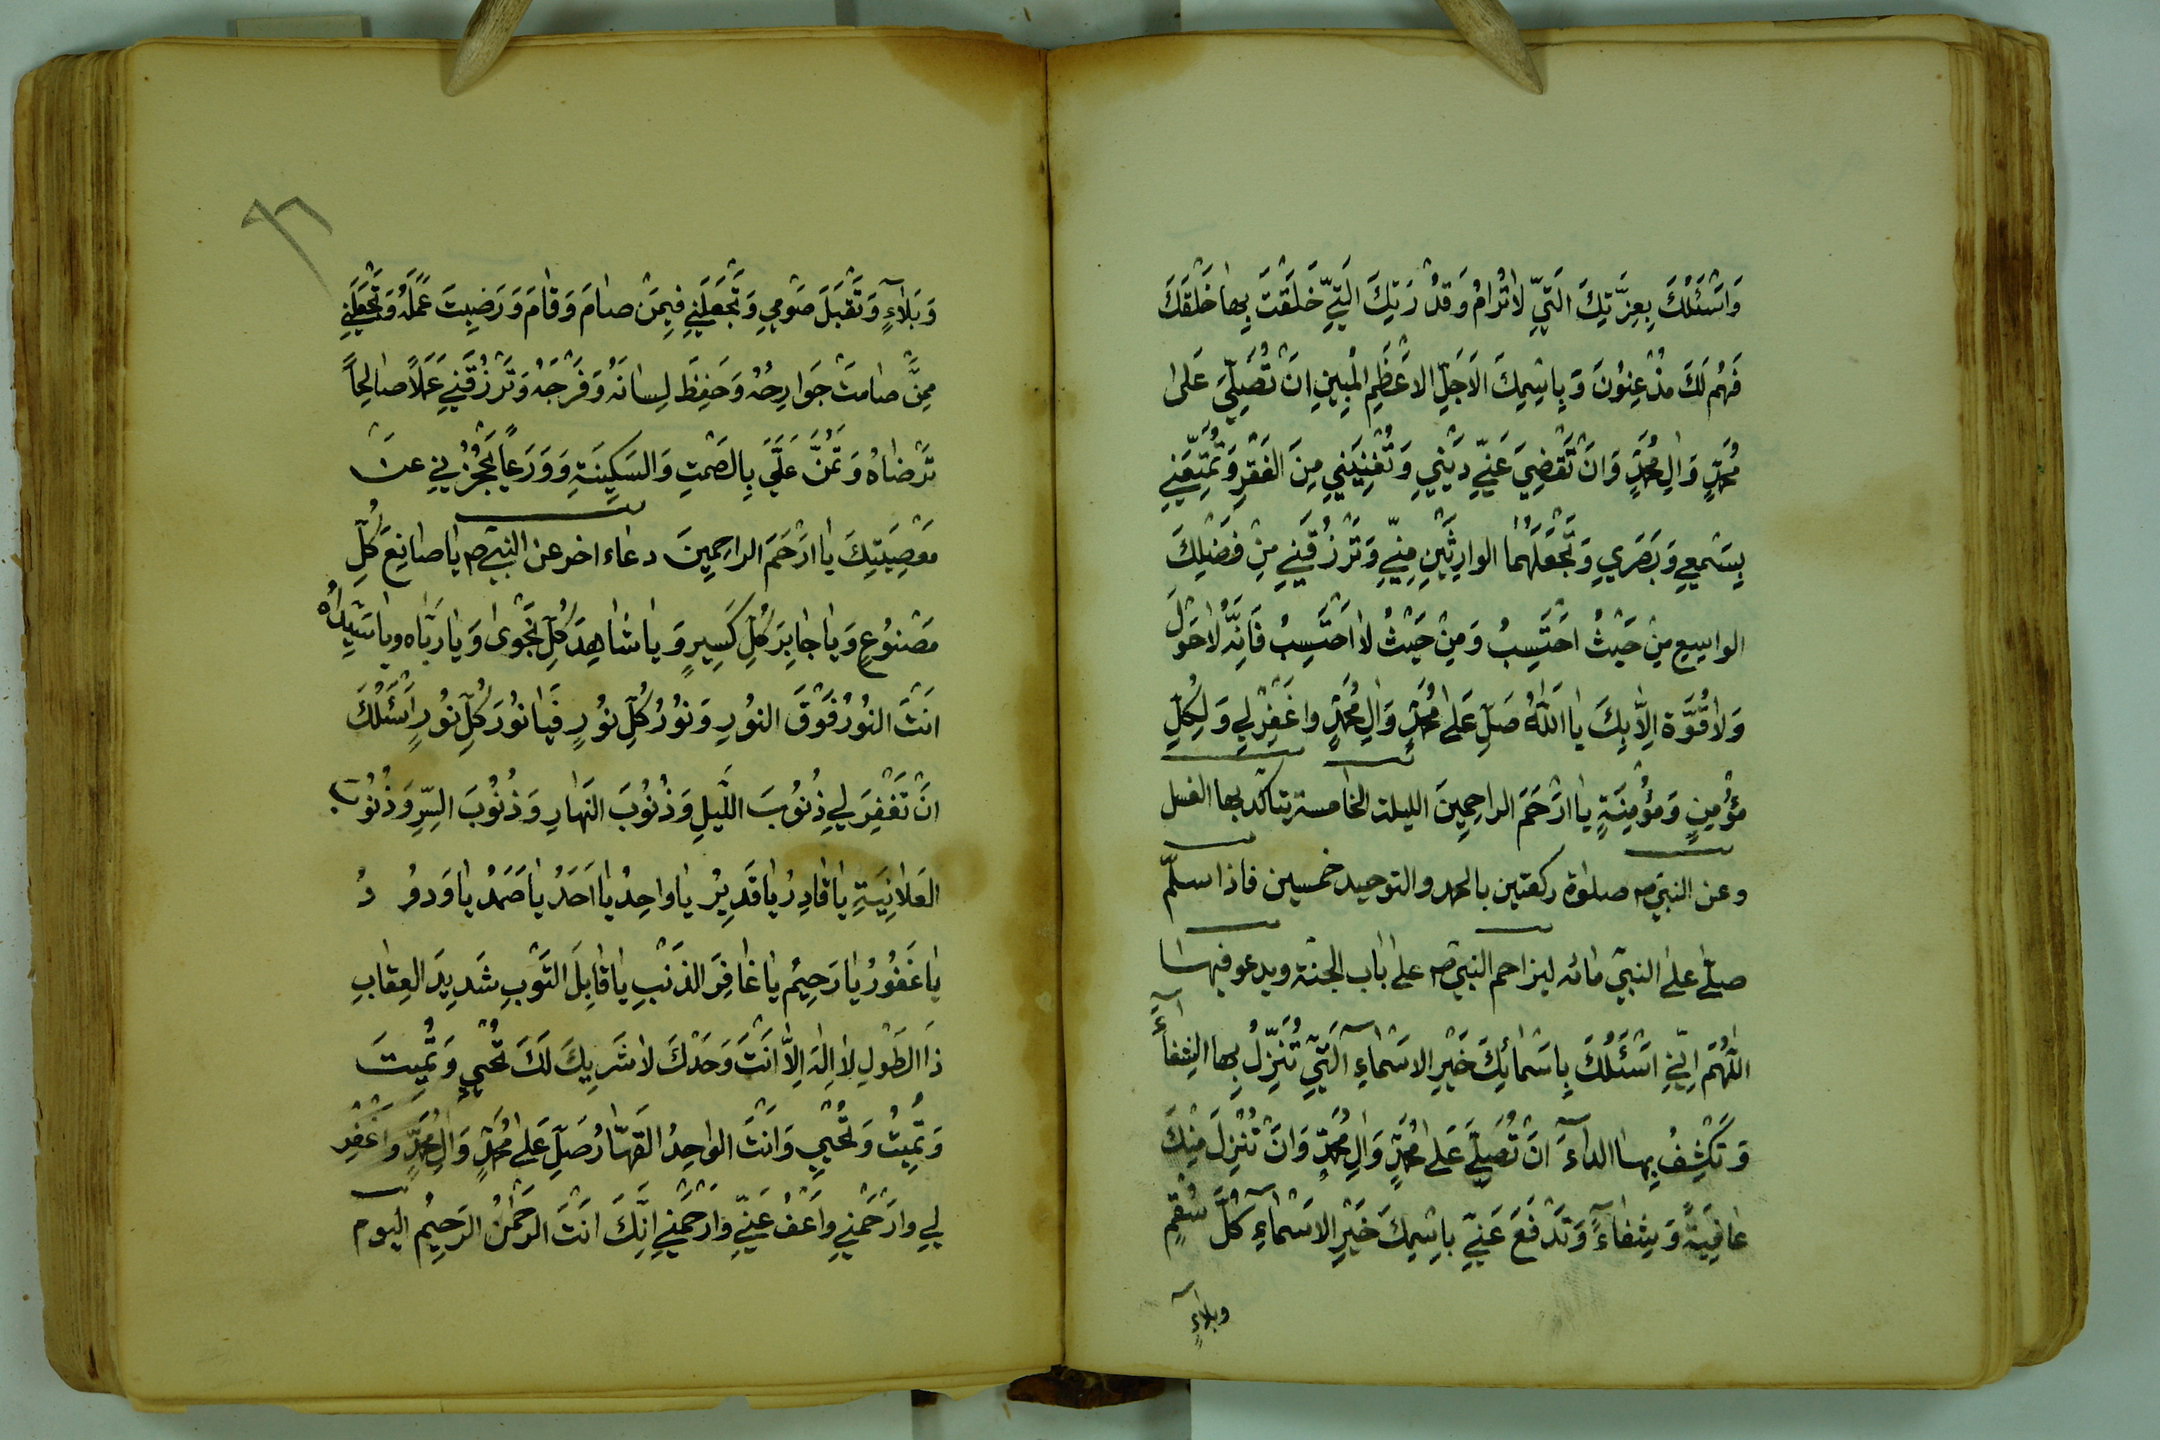 وَاَسْئَلُكَ بِعِزَّتِكَ الَّتِي لاتُرامُ وَقُدْرَتِكَ الَّتِي خَلَقْتَ بِها خَلْقَكَ
فَهُمْ لَكَ مُذْعِنُونَ وَبِاسْمِكَ الاَجَلِّ الاَعْظَمِ الْمُبِينِ اَنْ تُصَلِّيَ عَلى
مُحَمَّدٍ وَالِ مُحَمَّدٍ وَاَنْ تَقْضِيَ عَنِّي دَيْنِي وَتُغْنِيَنِي مِنَ الفَقْرِ وَتُمَتِّعَنِي
بِسَمْعِي وَبَصَرِي وَتَجْعَلَهُما الوارِثَيْنِ مِنِّي وَتَرْزُقَنِي مِنْ فَضْلِكَ
الواسِعِ مِنْ حَيْثُ اَحْتَسِبُ وَمِنْ حَيْثُ لا اَحْتَسِبُ فَاِنَّهُ لا حَوْلَ
وَلا قُوَّةَ اِلاَّ بِكَ يا اَللهُ صَلِّ عَلى مُحَمَّدٍ وَالِ مُحَمَّدٍ واغْفِرْ لِي وَلِكُلِّ
مُؤْمِنٍ وَمُؤْمِنَةٍ يا اَرْحَمَ الراحِمِينَ الليلة الخامسة يتاكّد بها الغسل
وعن النبيّ ص صلوة ركعتين بالحمد والتوحيد خمسين فاذا سلّم
صلّى على النبيّ مائه ليزاحم النبيّ ص على باب الجنة ويدعو فيها
اللّٰهُمَّ اِنِّي اَسْئَلُكَ بِاَسْمائِكَ خَيْرِ الاَسْماءِ الَّتِي تُنَزِّلُ بِها الشِفآءَ
وَتَكْشِفُ بِها الدآءَ اَنْ تُصَلِّيَ عَلى مُحَمَّدٍ وَالِ مُحَمَّدٍ وَاَنْ تُنْزِلَ مِنْكَ
عافِيَةً وَشِفاءً وَتَدْفَعَ عَنِّي بِاسْمِكَ خَيْرِ الاَسْماءِ كُلَّ سُقْمٍ
وبلآءٍ
٩٦
وَبَلاءٍ وَتَقَبَّلَ صَومِي وَتَجْعَلَنِي فِيمَنْ صامَ وَقامَ وَرَضِيتَ عَمَلَهُ وَتَجْعَلَنِي
مِمَّنْ صامَتْ جَوارِحُهُ وَحَفِظَ لِسانَهُ وَفَرْجَهُ وَتَرْزُقَنِي عَمَلاً صالِحاً
تَرْضاهُ وَتَمُنَّ عَلَيَّ بِالصَمْتِ وَالسَكِينَةِ وَوَرَعاً يَحْجُزُنِي عَنْ
مَعْصِيَتِكَ يا اَرْحَمَ الراحِمِينَ دعاء اخر عن النبي ص يا صانِعَ كُلِّ
مَصْنُوعٍ وَيا جابِرَ كُلِّ كَسِيرٍ وَيا شاهِدَ كُلِّ نَجْوى وَيا رَبّاه ويا سَيِّداهُ
اَنْتَ النُورُ فَوْقَ النُورِ وَنُورُ كُلِّ نُورٍ فَيا نُورَ كُلِّ نُورٍ اَسْئَلُكَ
اَنْ تَغْفِرَ لِي ذُنُوبَ اللَّيْلِ وَذُنُوبَ النَهارِ وَذُنُوبَ السِّرِ وَذُنُوبَ
العَلانِيَةِ يا قادِرُ يا قَدِيرُ يا واحِدُ يا اَحَدُ يا صَمَدُ يا وَدُودُ
يا غَفُورُ يا رَحِيمُ يا غافِرَ الذَنْبِ يا قابِلَ التَوْبِ شَدِيدَ العِقابِ
ذَا الطَوْلِ لا اِلهَ اِلاَّ اَنْتَ وَحْدَكَ لا شَرِيكَ لَكَ تُحْيِي وَتُمِيتُ
وَتُمِيتُ وَتُحْيِي وَاَنْتَ الواحِدُ القَهّارُ صَلِّ عَلى مُحَمَّدٍ وَالِ مُحَمَّدٍ واغْفِرْ
لِي وارْحَمْنِي واعْفُ عَنِّي وَارْحَمْنِي اِنَّكَ اَنْتَ الرَحْمنُ الرَحِيمُ اليوم